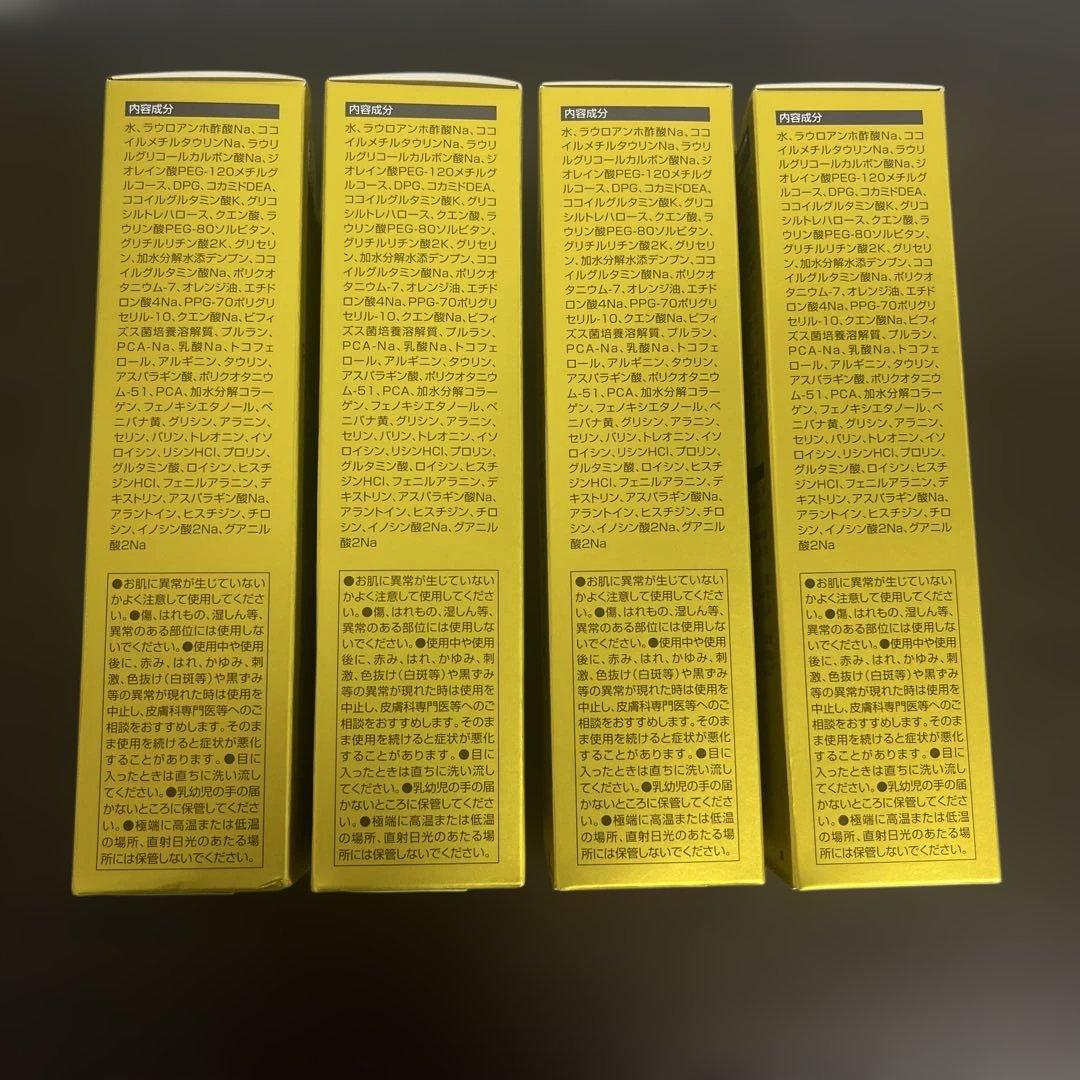 内容成分
水、ラウロアンホ酢酸Na、ココ
イルメチルタウリンNa、ラウリ
ルグリコールカルボン酸Na、ジ
オレイン酸PEG-120メチルグ
ルコース、DPG、コカミドDEA、
ココイルグルタミン酸K、グリコ
シルトレハロース、クエン酸、ラ
ウリン酸PEG-80ソルビタン、
グリチルリチン酸2K、グリセリ
ン、加水分解水添デンプン、ココ
イルグルタミン酸Na、ポリクオ
タニウム-7、オレンジ油、エチド
ロン酸4Na、PPG-70ポリグリ
セリル-10、クエン酸Na、ビフィ
ズス菌培養溶解質、プルラン、
PCA-Na、乳酸Na、トコフェ
ロール、アルギニン、タウリン、
アスパラギン酸、ポリクオタニウ
ム-51、PCA、加水分解コラー
ゲン、フェノキシエタノール、ベ
ニバナ黄、グリシン、アラニン、
セリン、バリン、トレオニン、イソ
ロイシン、リシンHCl、プロリン、
グルタミン酸、ロイシン、ヒスチ
ジンHCl、フェニルアラニン、デ
キストリン、アスパラギン酸Na、
アラントイン、ヒスチジン、チロ
シン、イノシン酸2Na、グアニル
酸2Na
●お肌に異常が生じていない
かよく注意して使用してくださ
い。●傷、はれもの、湿しん等、
異常のある部位には使用しな
いでください。●使用中や使用
後に、赤み、はれ、かゆみ、刺
激、色抜け(白斑等)や黒ずみ
等の異常が現れた時は使用を
中止し、皮膚科専門医等へのご
相談をおすすめします。そのま
ま使用を続けると症状が悪化
することがあります。●目に
入ったときは直ちに洗い流し
てください。●乳幼児の手の届
かないところに保管してくださ
い。●極端に高温または低温
の場所、直射日光のあたる場
所には保管しないでください。
内容成分
水、ラウロアンホ酢酸Na、ココ
イルメチルタウリンNa、ラウリ
ルグリコールカルボン酸Na、ジ
オレイン酸PEG-120メチルグ
ルコース、DPG、コカミドDEA、
ココイルグルタミン酸K、グリコ
シルトレハロース、クエン酸、ラ
ウリン酸PEG-80ソルビタン、
グリチルリチン酸2K、グリセリ
ン、加水分解水添デンプン、ココ
イルグルタミン酸Na、ポリクオ
タニウム-7、オレンジ油、エチド
ロン酸4Na、PPG-70ポリグリ
セリル-10、クエン酸Na、ビフィ
ズス菌培養溶解質、プルラン、
PCA-Na、乳酸Na、トコフェ
ロール、アルギニン、タウリン、
アスパラギン酸、ポリクオタニウ
ム-51、PCA、加水分解コラー
ゲン、フェノキシエタノール、ベ
ニバナ黄、グリシン、アラニン、
セリン、バリン、トレオニン、イソ
ロイシン、リシンHCl、プロリン、
グルタミン酸、ロイシン、ヒスチ
ジンHCl、フェニルアラニン、デ
キストリン、アスパラギン酸Na、
アラントイン、ヒスチジン、チロ
シン、イノシン酸2Na、グアニル
酸2Na
●お肌に異常が生じていない
かよく注意して使用してくださ
い。●傷、はれもの、湿しん等、
異常のある部位には使用しな
いでください。●使用中や使用
後に、赤み、はれ、かゆみ、刺
激、色抜け(白斑等)や黒ずみ
等の異常が現れた時は使用を
中止し、皮膚科専門医等へのご
相談をおすすめします。そのま
ま使用を続けると症状が悪化
することがあります。●目に
入ったときは直ちに洗い流し
てください。●乳幼児の手の届
かないところに保管してくださ
い。●極端に高温または低温
の場所、直射日光のあたる場
所には保管しないでください。
内容成分
水、ラウロアンホ酢酸Na、ココ
イルメチルタウリンNa、ラウリ
ルグリコールカルボン酸Na、ジ
オレイン酸PEG-120メチルグ
ルコース、DPG、コカミドDEA、
ココイルグルタミン酸K、グリコ
シルトレハロース、クエン酸、ラ
ウリン酸PEG-80ソルビタン、
グリチルリチン酸2K、グリセリ
ン、加水分解水添デンプン、ココ
イルグルタミン酸Na、ポリクオ
タニウム-7、オレンジ油、エチド
ロン酸4Na、PPG-70ポリグリ
セリル-10、クエン酸Na、ビフィ
ズス菌培養溶解質、プルラン、
PCA-Na、乳酸Na、トコフェ
ロール、アルギニン、タウリン、
アスパラギン酸、ポリクオタニウ
ム-51、PCA、加水分解コラー
ゲン、フェノキシエタノール、ベ
ニバナ黄、グリシン、アラニン、
セリン、バリン、トレオニン、イソ
ロイシン、リシンHCl、プロリン、
グルタミン酸、ロイシン、ヒスチ
ジンHCl、フェニルアラニン、デ
キストリン、アスパラギン酸Na、
アラントイン、ヒスチジン、チロ
シン、イノシン酸2Na、グアニル
酸2Na
●お肌に異常が生じていない
かよく注意して使用してくださ
い。●傷、はれもの、湿しん等、
異常のある部位には使用しな
いでください。●使用中や使用
後に、赤み、はれ、かゆみ、刺
激、色抜け(白斑等)や黒ずみ
等の異常が現れた時は使用を
中止し、皮膚科専門医等へのご
相談をおすすめします。そのま
ま使用を続けると症状が悪化
することがあります。●目に
入ったときは直ちに洗い流し
てください。●乳幼児の手の届
かないところに保管してくださ
い。●極端に高温または低温
の場所、直射日光のあたる場
所には保管しないでください。
内容成分
水、ラウロアンホ酢酸Na、ココ
イルメチルタウリンNa、ラウリ
ルグリコールカルボン酸Na、ジ
オレイン酸PEG-120メチルグ
ルコース、DPG、コカミドDEA、
ココイルグルタミン酸K、グリコ
シルトレハロース、クエン酸、ラ
ウリン酸PEG-80ソルビタン、
グリチルリチン酸2K、グリセリ
ン、加水分解水添デンプン、ココ
イルグルタミン酸Na、ポリクオ
タニウム-7、オレンジ油、エチド
ロン酸4Na、PPG-70ポリグリ
セリル-10、クエン酸Na、ビフィ
ズス菌培養溶解質、プルラン、
PCA-Na、乳酸Na、トコフェ
ロール、アルギニン、タウリン、
アスパラギン酸、ポリクオタニウ
ム-51、PCA、加水分解コラー
ゲン、フェノキシエタノール、ベ
ニバナ黄、グリシン、アラニン、
セリン、バリン、トレオニン、イソ
ロイシン、リシンHCl、プロリン、
グルタミン酸、ロイシン、ヒスチ
ジンHCl、フェニルアラニン、デ
キストリン、アスパラギン酸Na、
アラントイン、ヒスチジン、チロ
シン、イノシン酸2Na、グアニル
酸2Na
●お肌に異常が生じていない
かよく注意して使用してくださ
い。●傷、はれもの、湿しん等、
異常のある部位には使用しな
いでください。●使用中や使用
後に、赤み、はれ、かゆみ、刺
激、色抜け(白斑等)や黒ずみ
等の異常が現れた時は使用を
中止し、皮膚科専門医等へのご
相談をおすすめします。そのま
ま使用を続けると症状が悪化
することがあります。●目に
入ったときは直ちに洗い流し
てください。●乳幼児の手の届
かないところに保管してくださ
い。●極端に高温または低温
の場所、直射日光のあたる場
所には保管しないでください。